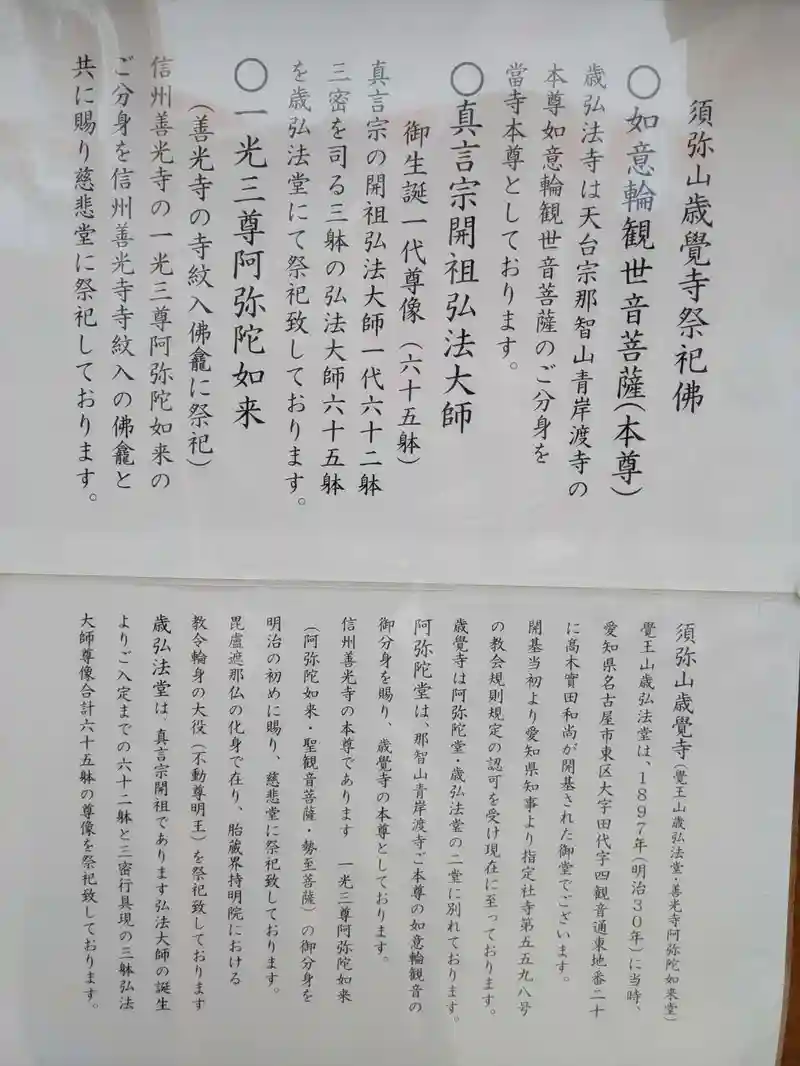 須弥山歳覺寺祭祀佛
〇如意輪観世音菩薩(本尊)
歳弘法寺は天台宗那智山青岸渡寺の
本尊如意輪観世音菩薩のご分身を
當寺本尊としております。
〇真言宗開祖弘法大師
御生誕一代尊像(六十五躰)
真言宗の開祖弘法大師一代六十二躰
三密を司る三躰の弘法大師六十五躰
を歳弘法堂にて祭祀致しております。
〇一光三尊阿弥陀如来
(善光寺の寺紋入佛龕に祭祀)
信州善光寺の一光三尊阿弥陀如来の
ご分身を信州善光寺寺紋入の佛龕と
共に賜り慈悲堂に祭祀しております。
須弥山歳覺寺(覺王山歳弘法堂・善光寺阿弥陀如来堂)
覺王山歳弘法堂は、1897年(明治30年)に当時、
愛知県名古屋市東区大字田代字四観音通東地番二十
に髙木實田和尚が開基された御堂でございます。
開基当初より愛知県知事より指定社寺第五五九八号
の教会規則規定の認可を受け現在に至っております。
歳覺寺は阿弥陀堂・歳弘法堂の二堂に別れております。
阿弥陀堂は、那智山青岸渡寺ご本尊の如意輪観音の
御分身を賜り、歳覺寺の本尊としております。
信州善光寺の本尊であります 一光三尊阿弥陀如来
(阿弥陀如来・聖観音菩薩・勢至菩薩)の御分身を
明治の初めに賜り、慈悲堂に祭祀致しております。
毘盧遮那仏の化身で在り、胎蔵界持明院における
教令輪身の大役(不動尊明王)を祭祀致しております
歳弘法堂は、真言宗開祖であります弘法大師の誕生
よりご入定までの六十二躰と三密行具現の三躰弘法
大師尊像合計六十五躰の尊像を祭祀致しております。